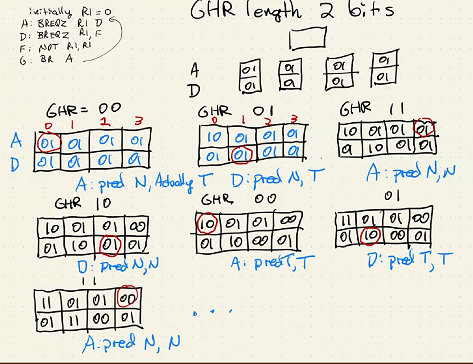 initially R1=0
A: BREQZ R1 D
D: BREQZ R1, F
F: NOT R1, R1
G: BR A
GHR length 2 bits
A 01 01 01 01
D 01 01 01 01
GHR = 00
0 1 2 3
A 01 01 01 01
D 01 01 01 01
A: pred N, Actually T
GHR 01
0 1 2 3
10 01 01 01
01 01 01 01
D: pred N, T
GHR 11
10 01 01 01
01 10 01 01
A: pred N, N
GHR 10
10 01 01 00
01 10 01 01
D: pred N, N
GHR 00
10 01 01 00
01 10 00 01
A: pred T, T
01
11 01 01 00
01 10 00 01
D: pred T, T
11
11 01 01 00
01 11 00 01
A: pred N, N
. . .